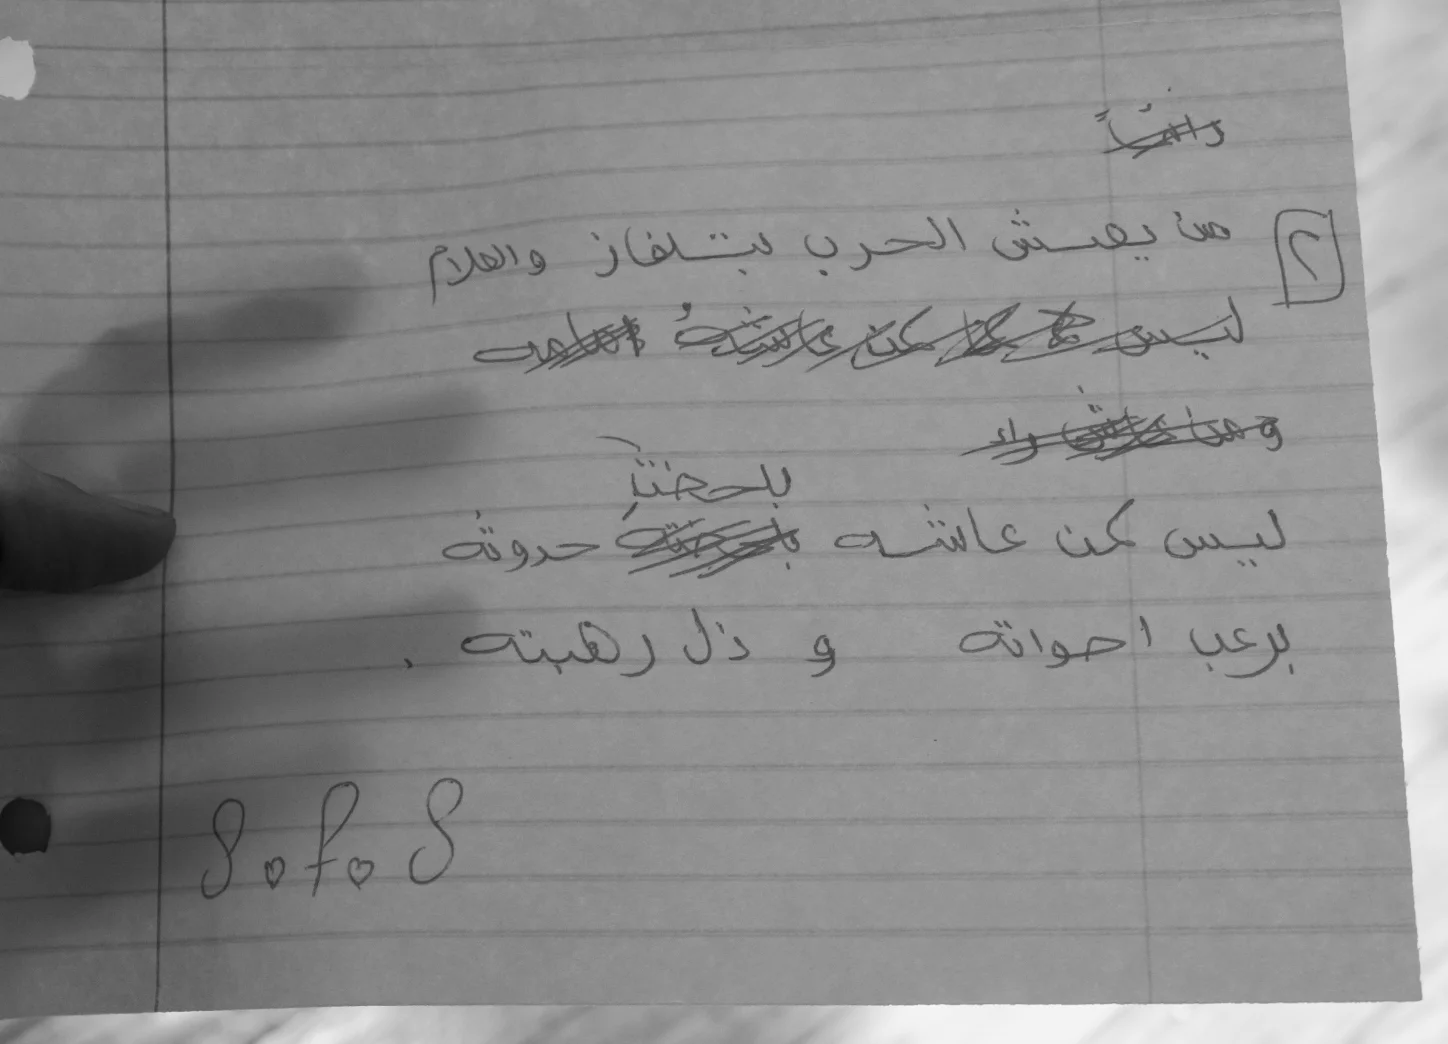 ٢ من يعش الحرب بتلفاز والعلام
ليس
بلحضة
ليس كمن عاشه حدوثه
برعب احواته و ذل رهبته .
S.f.S